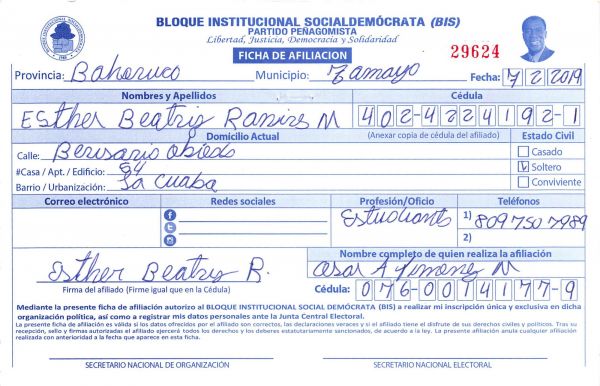 BLOQUE INSTITUCIONAL SOCIALDEMÓCRATA (BIS)
PARTIDO PEÑAGOMISTA
Libertad, Justicia, Democracia y Solidaridad
FICHA DE AFILIACION
29624
Provincia: Bahoruco Municipio: Tamayo Fecha: 7/2/2019
Nombres y Apellidos Cédula
Esther Beatriz Ramires M 402-4224192-1
Domicilio Actual (Anexar copia de cédula del afiliado) Estado Civil
Calle: Berisario Obiedo Casado
#Casa / Apt. / Edificio: 94 Soltero
Barrio / Urbanización: La Cuaba Conviviente
Correo electrónico Redes sociales Profesión/Oficio Teléfonos
Estudiante 1) 809 750 7989
2)
Nombre completo de quien realiza la afiliación
Esther Beatriz R. Cesar A Jimenez M
Firma del afiliado (Firme igual que en la Cédula) Cédula: 076-0014177-9
Mediante la presente ficha de afiliación autorizo al BLOQUE INSTITUCIONAL SOCIAL DEMÓCRATA (BIS) a realizar mi inscripción única y exclusiva en dicha
organización política, así como a registrar mis datos personales ante la Junta Central Electoral.
La presente ficha de afiliación es válida si los datos ofrecidos por el afiliado son correctos, las declaraciones veraces y si el afiliado tiene el disfrute de sus derechos civiles y políticos. Tras su
recepción, sello y firmas autorizadas el afiliado ejercerá todos los derechos y los deberes estatutariamente sancionados, de acuerdo a la ley. La presente afiliación anula cualquier afiliación
realizada con anterioridad a la fecha que aparece en esta ficha.
SECRETARIO NACIONAL DE ORGANIZACIÓN SECRETARIO NACIONAL ELECTORAL